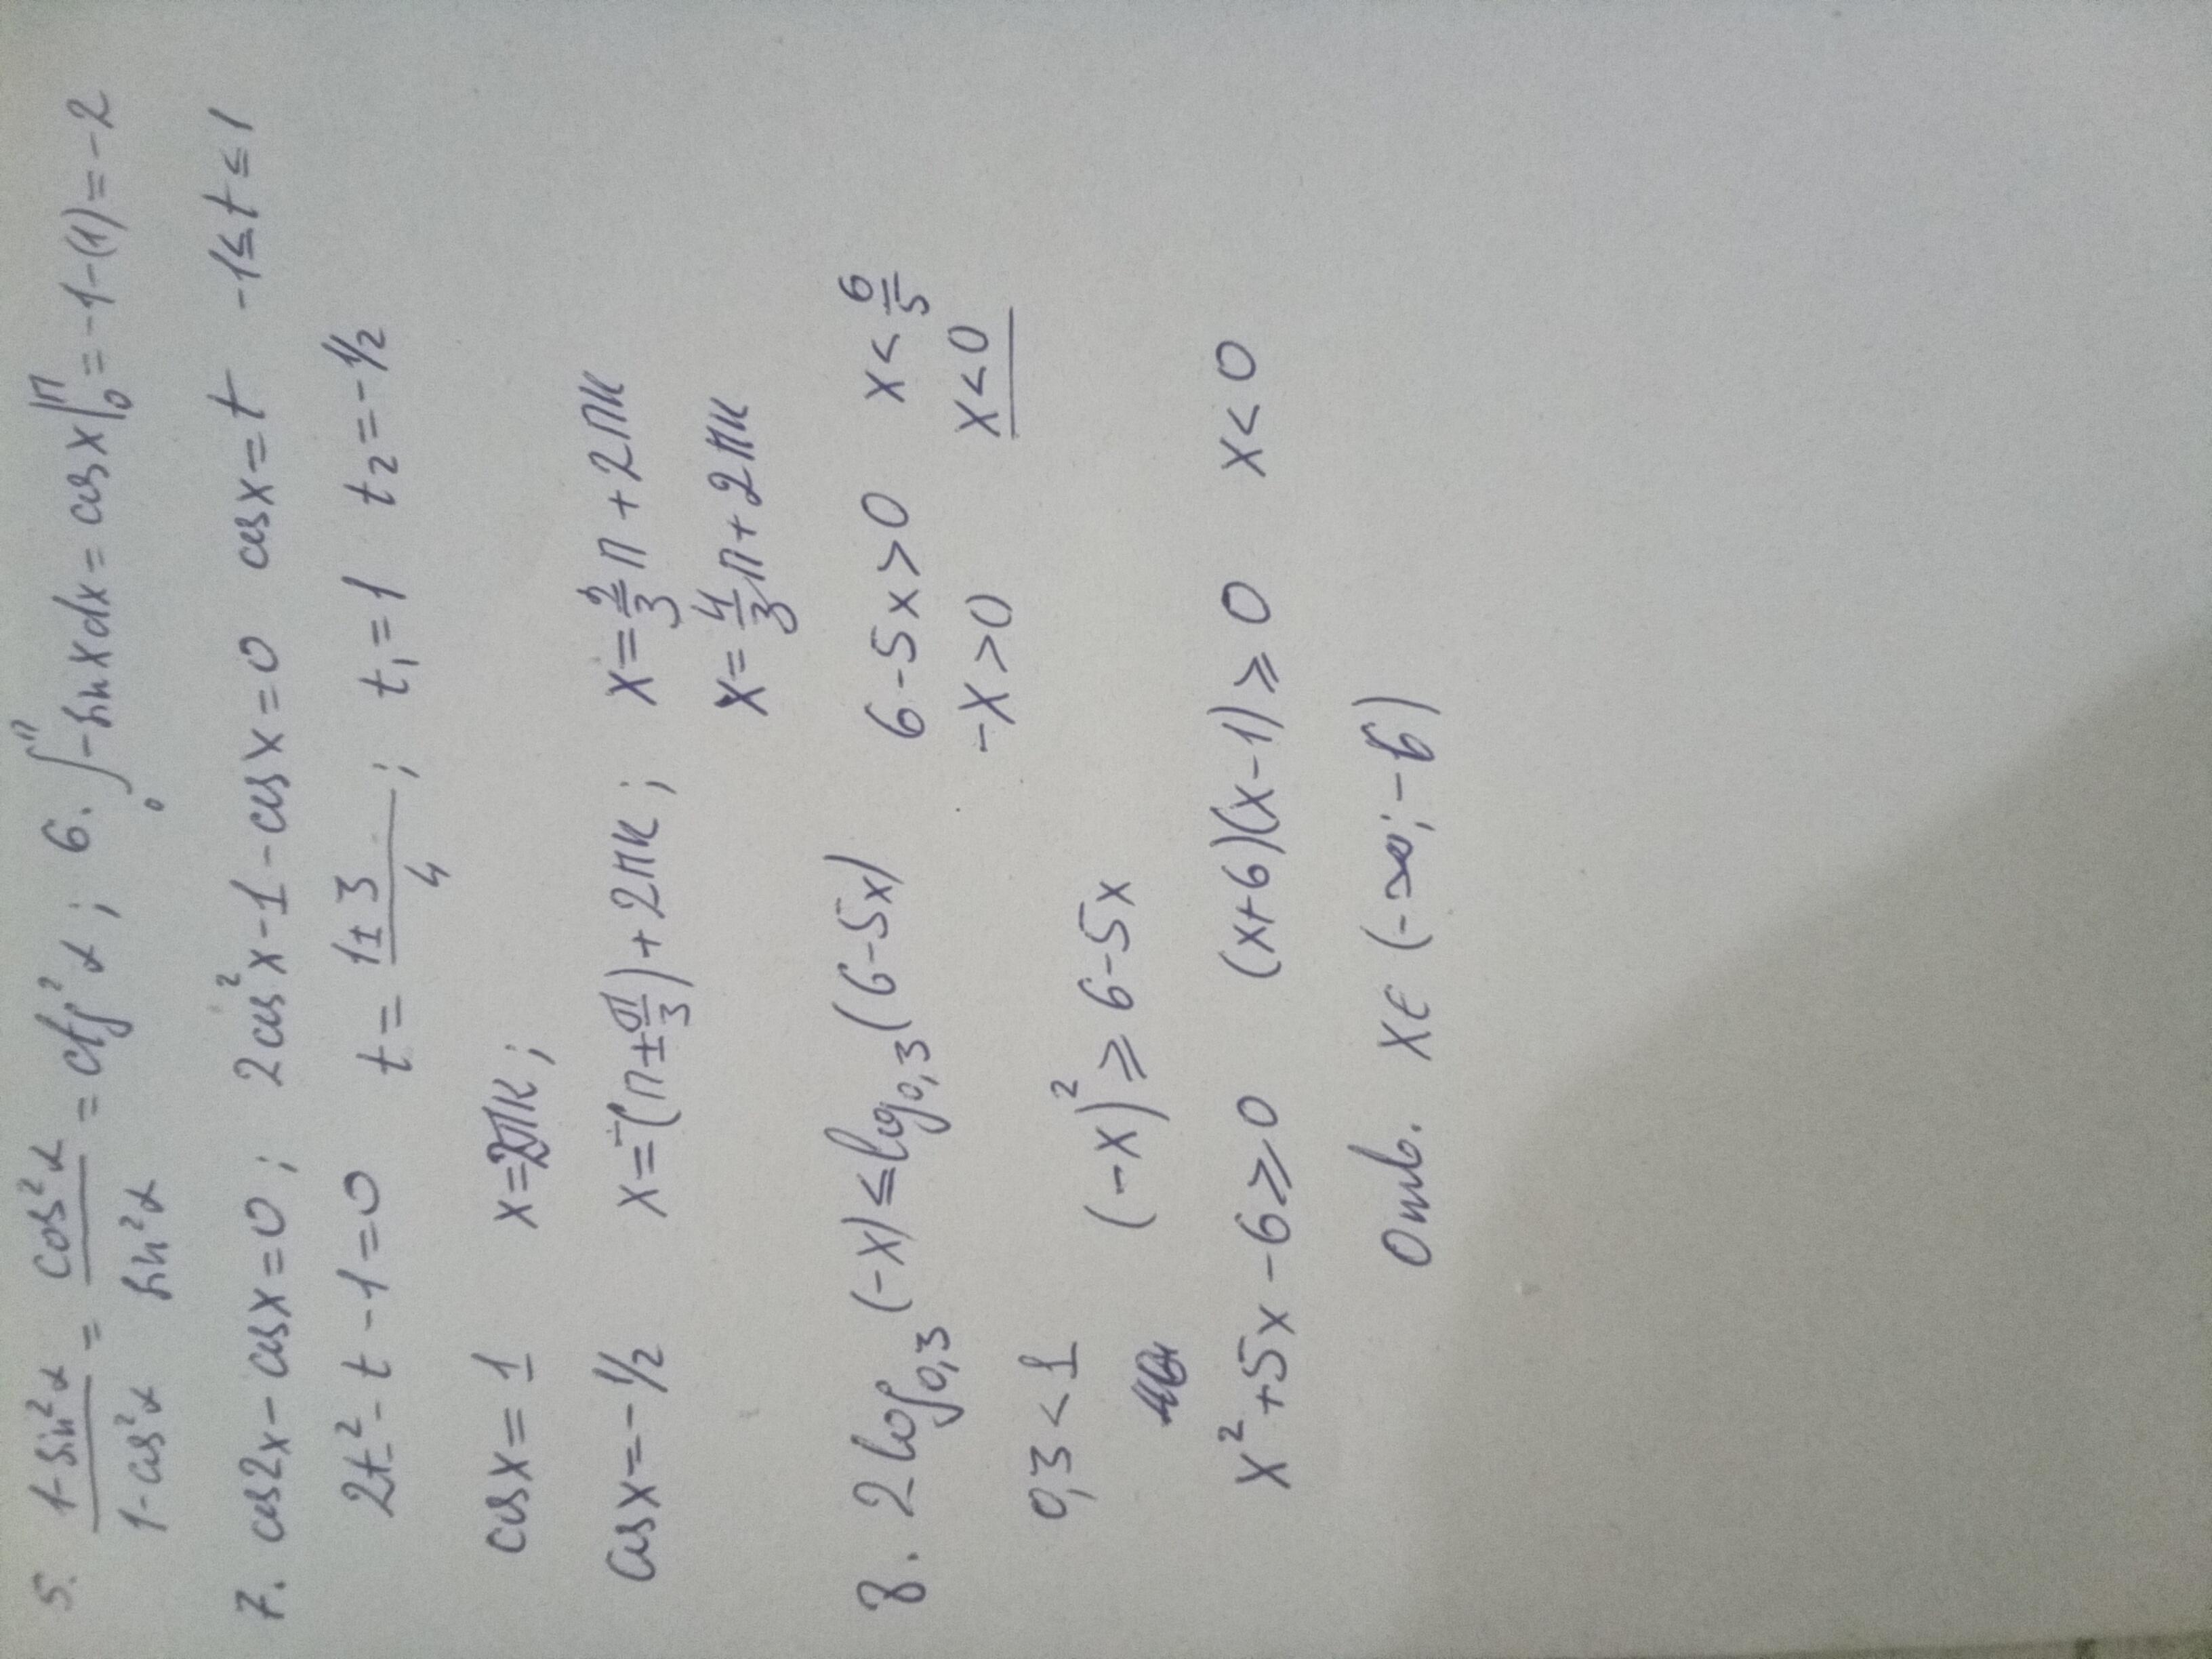 5. (1-sin²α)/(1-cos²α) = cos²α/sin²α = ctg²α; 6. ∫₀^π -sin x dx = cos x|₀^π = -1-(1) = -2
7. cos2x - cosx = 0; 2cos²x - 1 - cosx = 0 cosx = t -1 ≤ t ≤ 1
2t² - t - 1 = 0 t = (1±3)/4; t₁ = 1 t₂ = -1/2
cosx = 1 x = 2πк;
cosx = -1/2 x = (π ± π/3) + 2πк; x = 2/3 π + 2πк
x = 4/3 π + 2πк
8. 2 log₀,₃(-x) ≤ log₀,₃(6-5x) 6-5x > 0 x < 6/5
-x > 0 x < 0
0,3 < 1 (-x)² ≥ 6-5x
x² + 5x - 6 ≥ 0 (x+6)(x-1) ≥ 0 x < 0
Отв. x ∈ (-∞; -6)